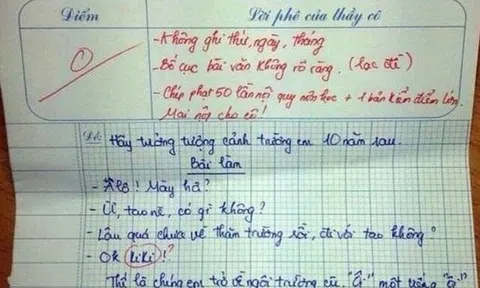 Điểm
Lời phê của thầy cô
0
- Không ghi thứ, ngày, tháng
- Bố cục bài văn không rõ ràng. (lạc đề)
- Chép phạt 50 lần nội quy môn học + 1 bản kiểm điểm lớn.
Mai nộp cho cô!
Đề: Hãy tưởng tượng cảnh trường em 10 năm sau.
Bài làm
- Alô! Mày hả?
- Ừ, tao nè, có gì không?
- Lâu quá chưa về thăm trường rồi, đi với tao không?
- Ok kiki !?
Thế là chúng em trở về ngôi trường cũ. "Ầi" một tiếng